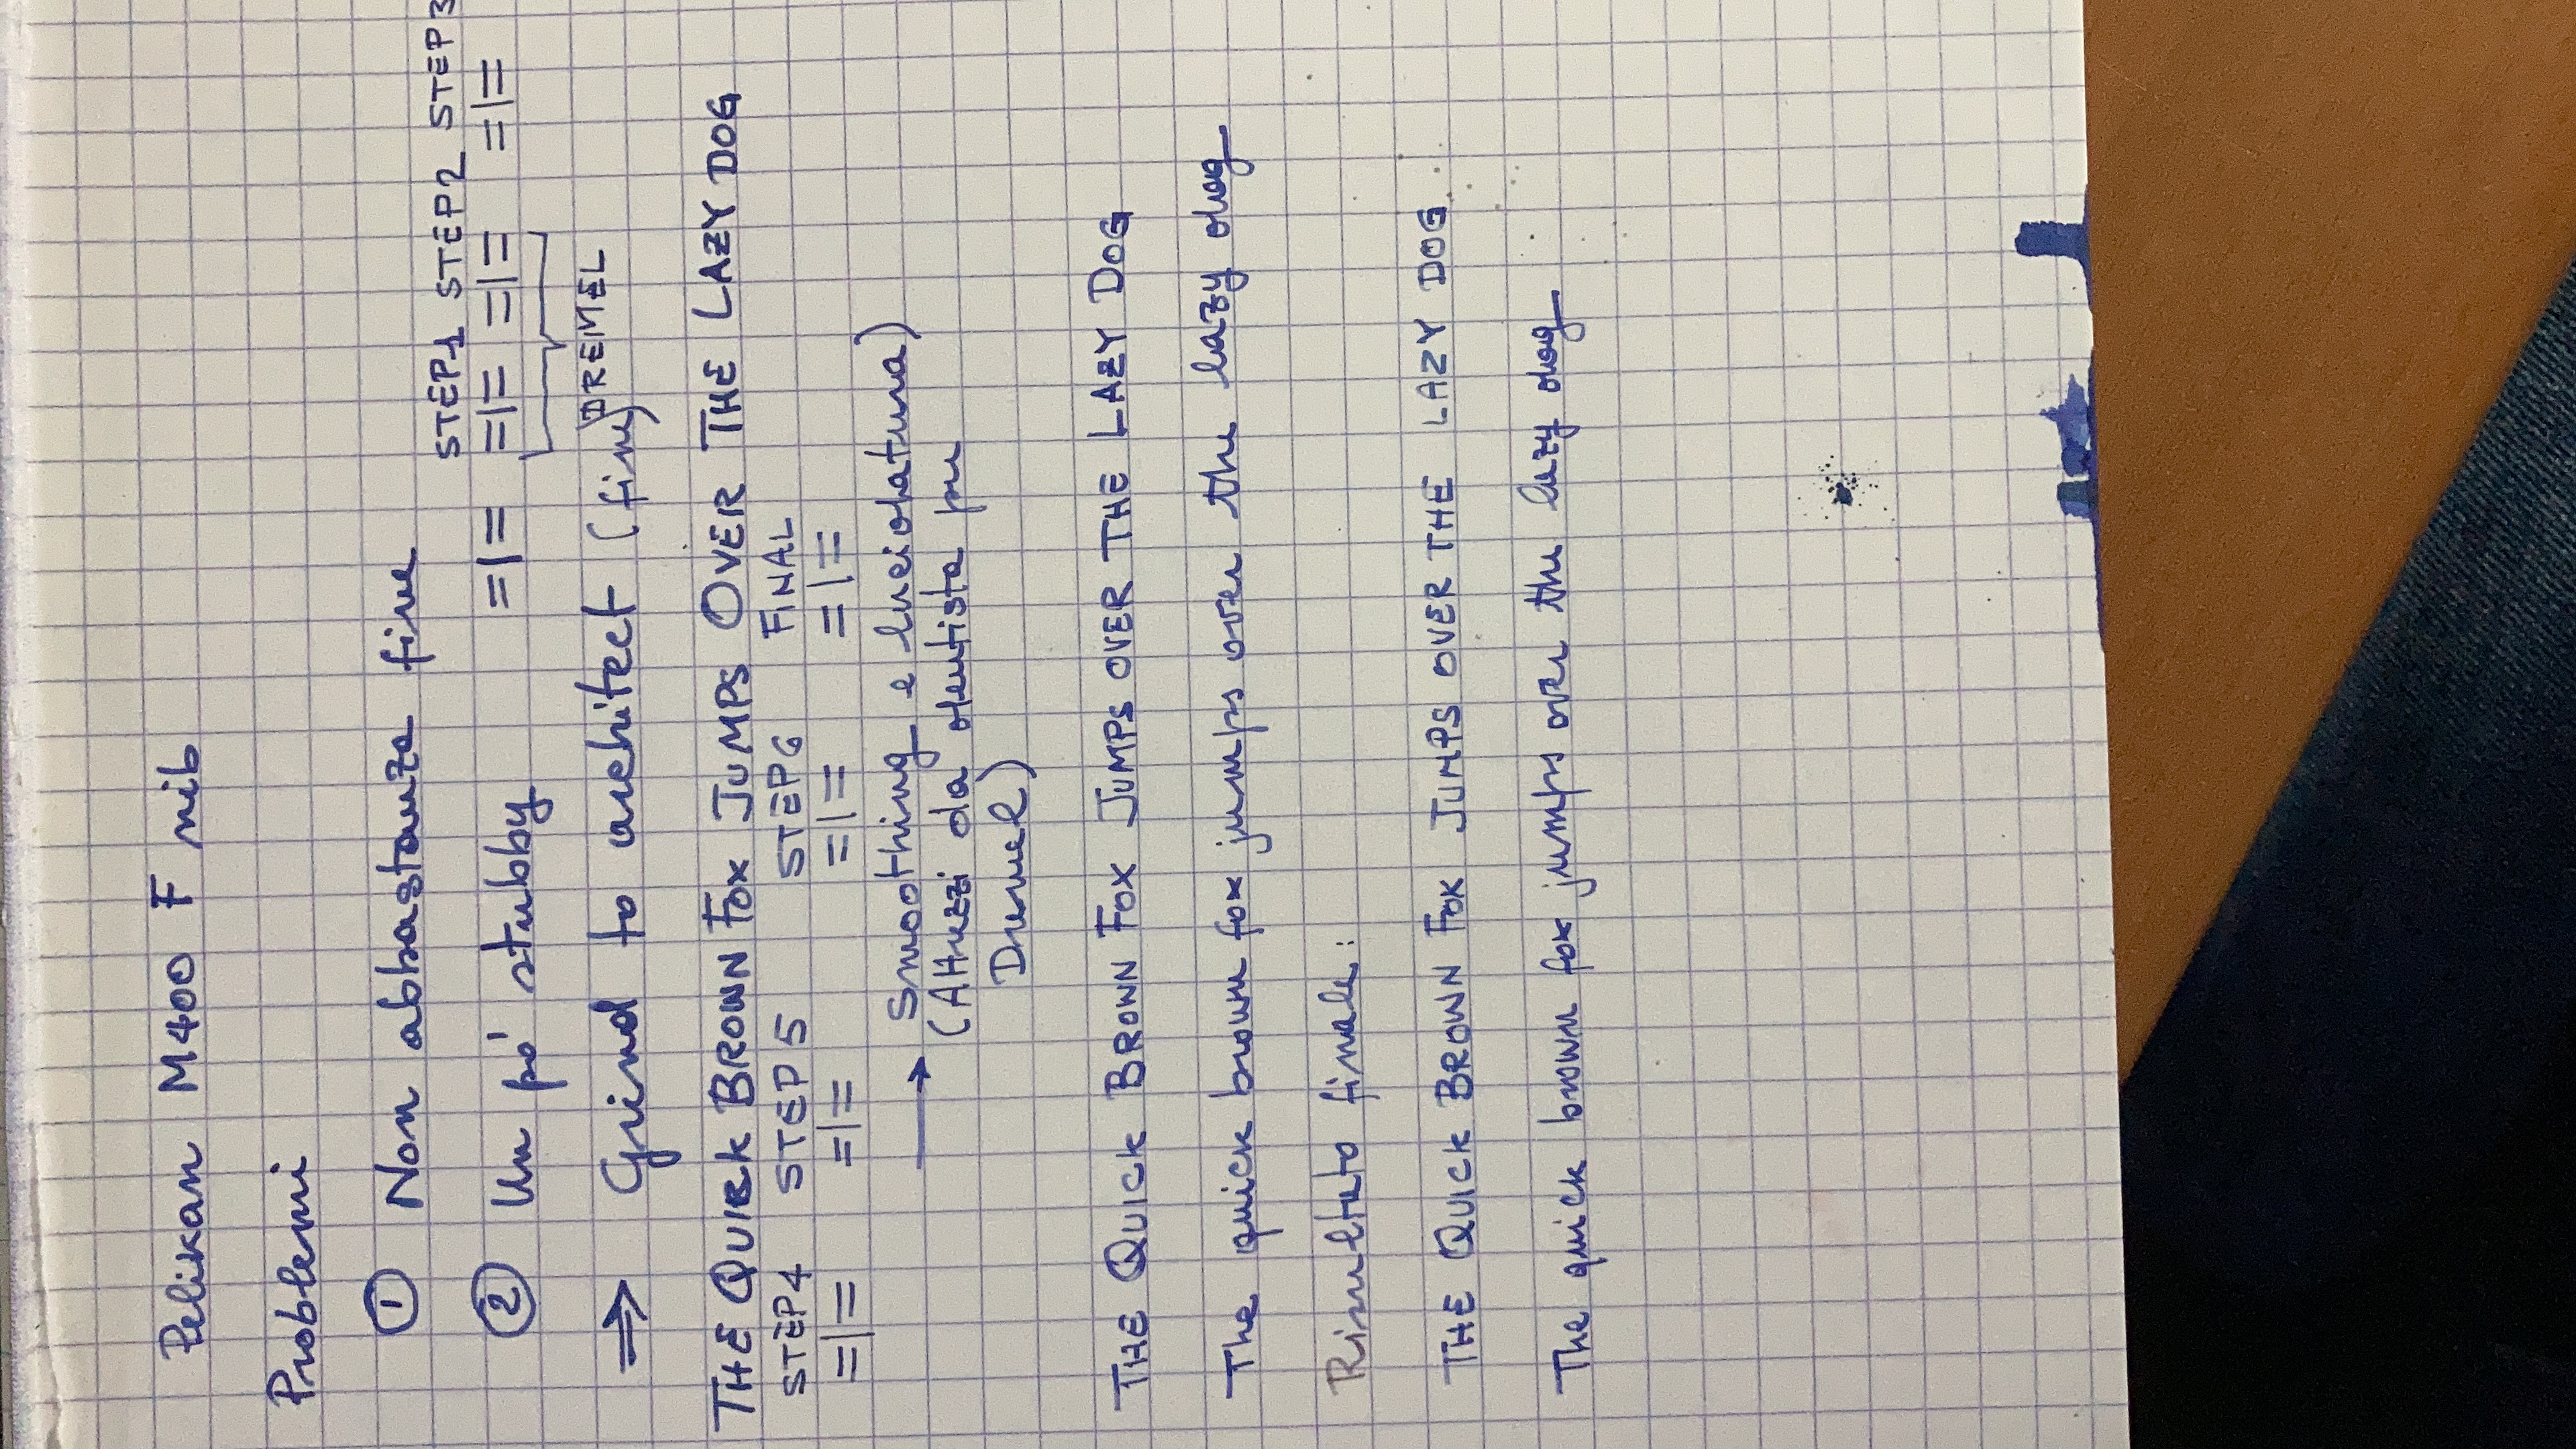 Pelikan M400 F nib
Problemi
① Non abbastanza fine
STEP1 STEP2 STEP3
② Un po' stubby =|= =|= =|= =|=
DREMEL
⇒ Grind to architect (fine)
THE QUICK BROWN FOX JUMPS OVER THE LAZY DOG
STEP4 STEP 5 STEP6 FINAL
=|= =|= =|= =|=
→ Smoothing e lucidatura)
(Attrezzi da dentista per
Dremel)
THE QUICK BROWN FOX JUMPS OVER THE LAZY DOG
The quick brown fox jumps over the lazy dog
Risultato finale:
THE QUICK BROWN FOX JUMPS OVER THE LAZY DOG
The quick brown fox jumps over the lazy dog